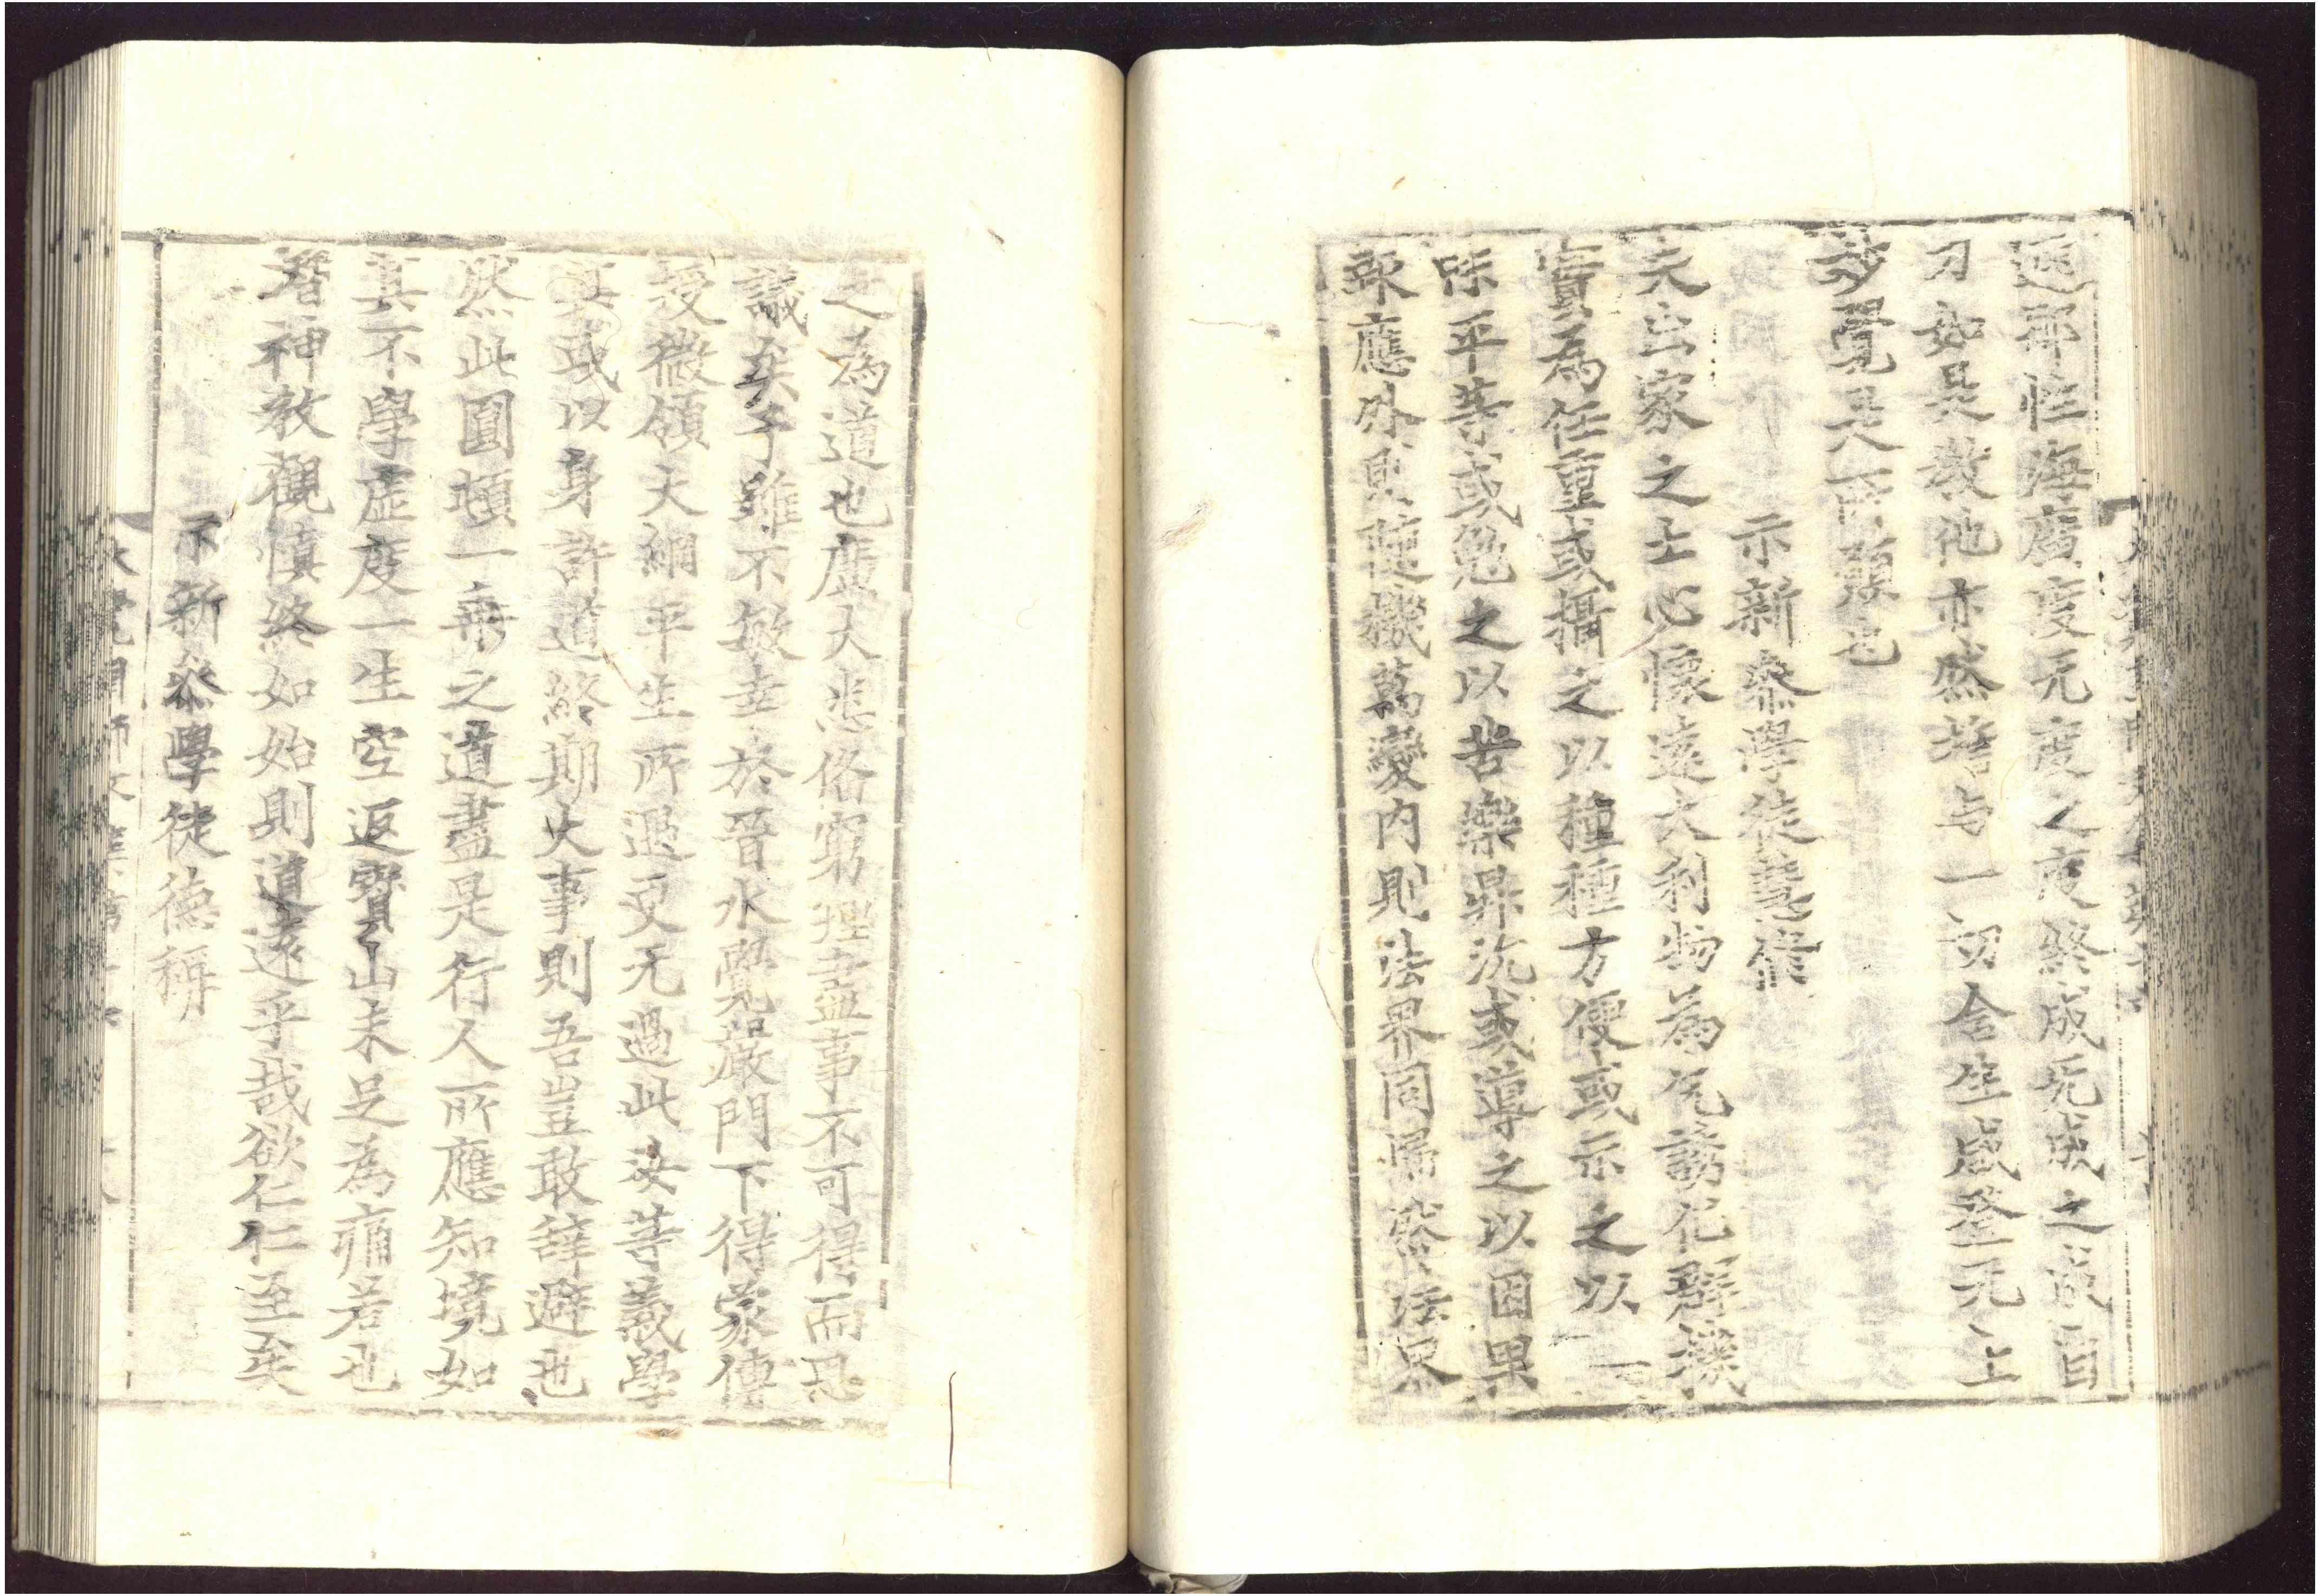 迴那性海廣度无度之度終成无成之成自
刃如是教他亦然普与一切含生咸登无上
妙覺是所願也
示新叅學徒慧修
夫出家之士必懷遠大利物為先誘化羣機
實為任重或攝之以種種方便或示之以一
味平等或勉之以苦樂昇沉或導之以因果
報應外則隨機萬變內則法界同歸然法界
之為道也廣大悉俗窮理盡事不可得而思
議矣予雖不敏幸於晉水覺嚴門下得蒙傳
授微領大綱平生所遇更无過此汝等義學
其或以身許道終期大事則吾豈敢辞避也
然此圓頓一乘之道盡是行人所應知境如
其不學虛度一生空返寶山未足為痛若也
潛神教觀慎終如始則道遠乎哉欲仁仁至矣
示新叅學徒德稱
大覺國師文集第十六